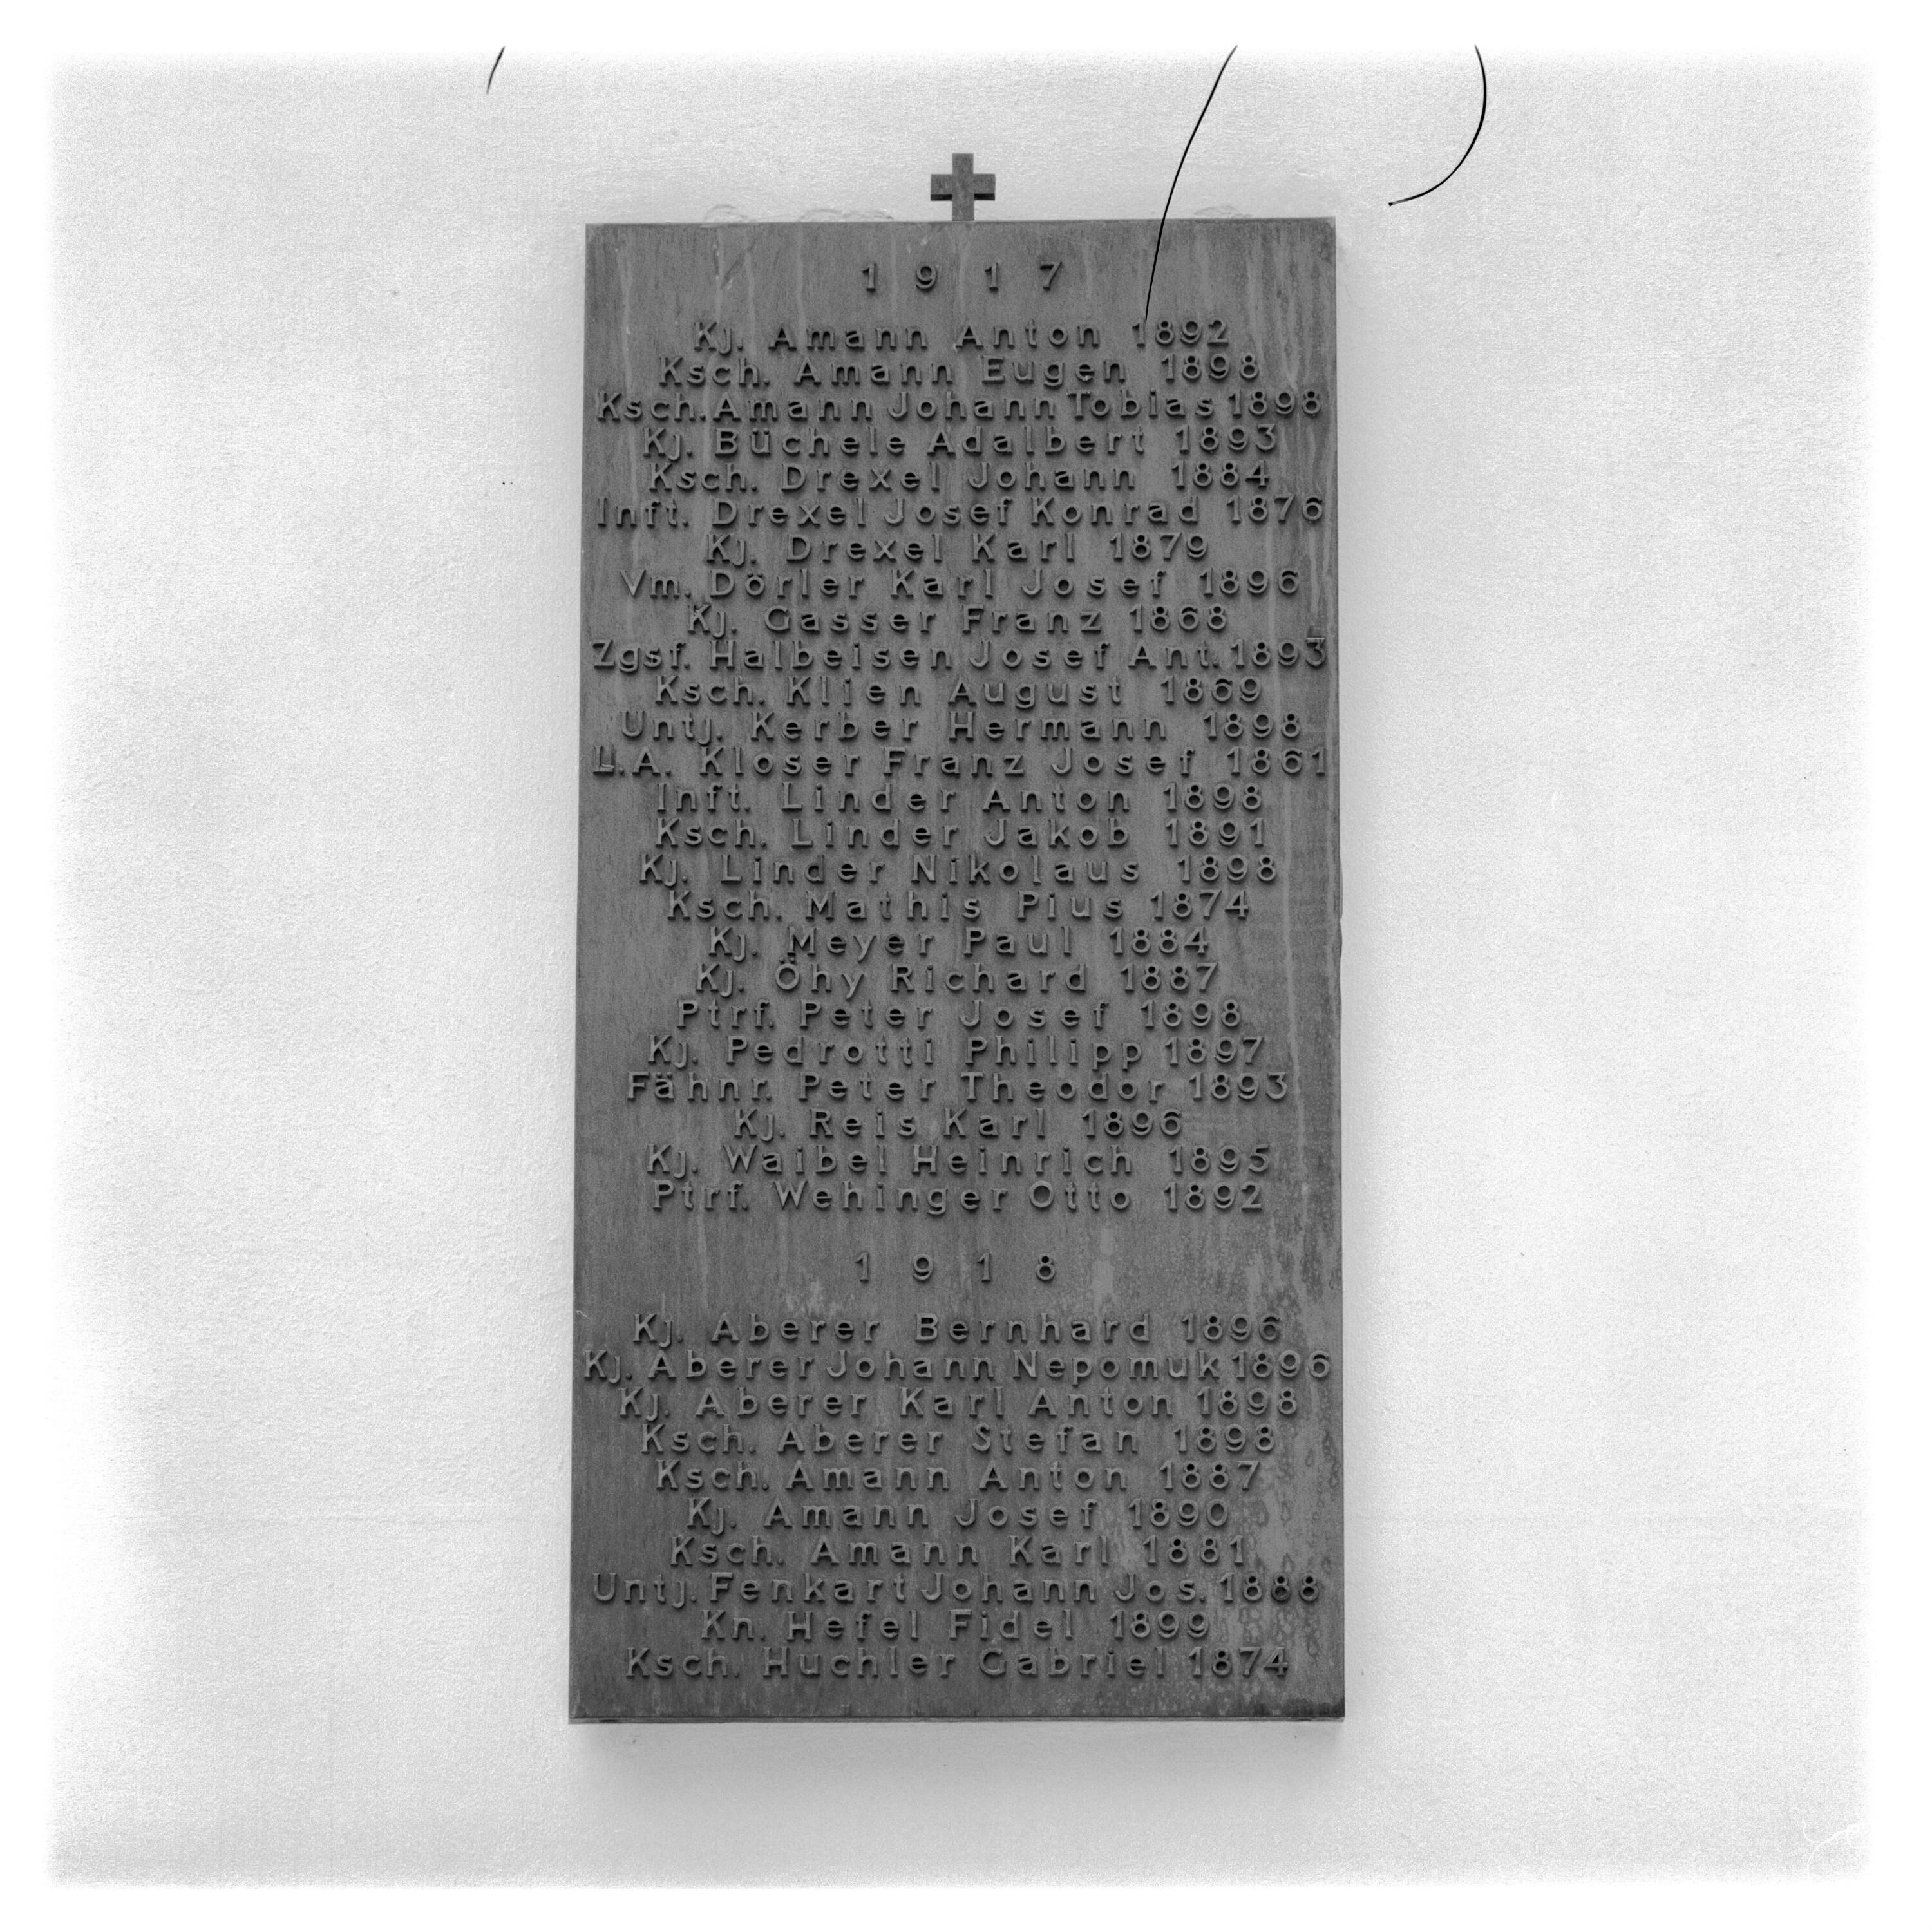 1917
Kj. Amann Anton 1892
Ksch. Amann Eugen 1898
Ksch. Amann Johann Tobias 1898
Kj. Büchele Adalbert 1893
Ksch. Drexel Johann 1884
Inft. Drexel Josef Konrad 1876
Kj. Drexel Karl 1879
Vm. Dörler Karl Josef 1896
Kj. Gasser Franz 1868
Zgsf. Halbeisen Josef Ant. 1893
Ksch. Klien August 1869
Untj. Kerber Hermann 1898
L.A. Kloser Franz Josef 1861
Inft. Linder Anton 1898
Ksch. Linder Jakob 1891
Kj. Linder Nikolaus 1898
Ksch. Mathis Pius 1874
Kj. Meyer Paul 1884
Kj. Öhy Richard 1887
Ptrf. Peter Josef 1898
Kj. Pedrotti Philipp 1897
Fähnr. Peter Theodor 1893
Kj. Reis Karl 1896
Kj. Waibel Heinrich 1895
Ptrf. Wehinger Otto 1892
1918
Kj. Aberer Bernhard 1896
Kj. Aberer Johann Nepomuk 1896
Kj. Aberer Karl Anton 1898
Ksch. Aberer Stefan 1898
Ksch. Amann Anton 1887
Kj. Amann Josef 1890
Ksch. Amann Karl 1881
Untj. Fenkart Johann Jos. 1888
Kn. Hefel Fidel 1899
Ksch. Huchler Gabriel 1874